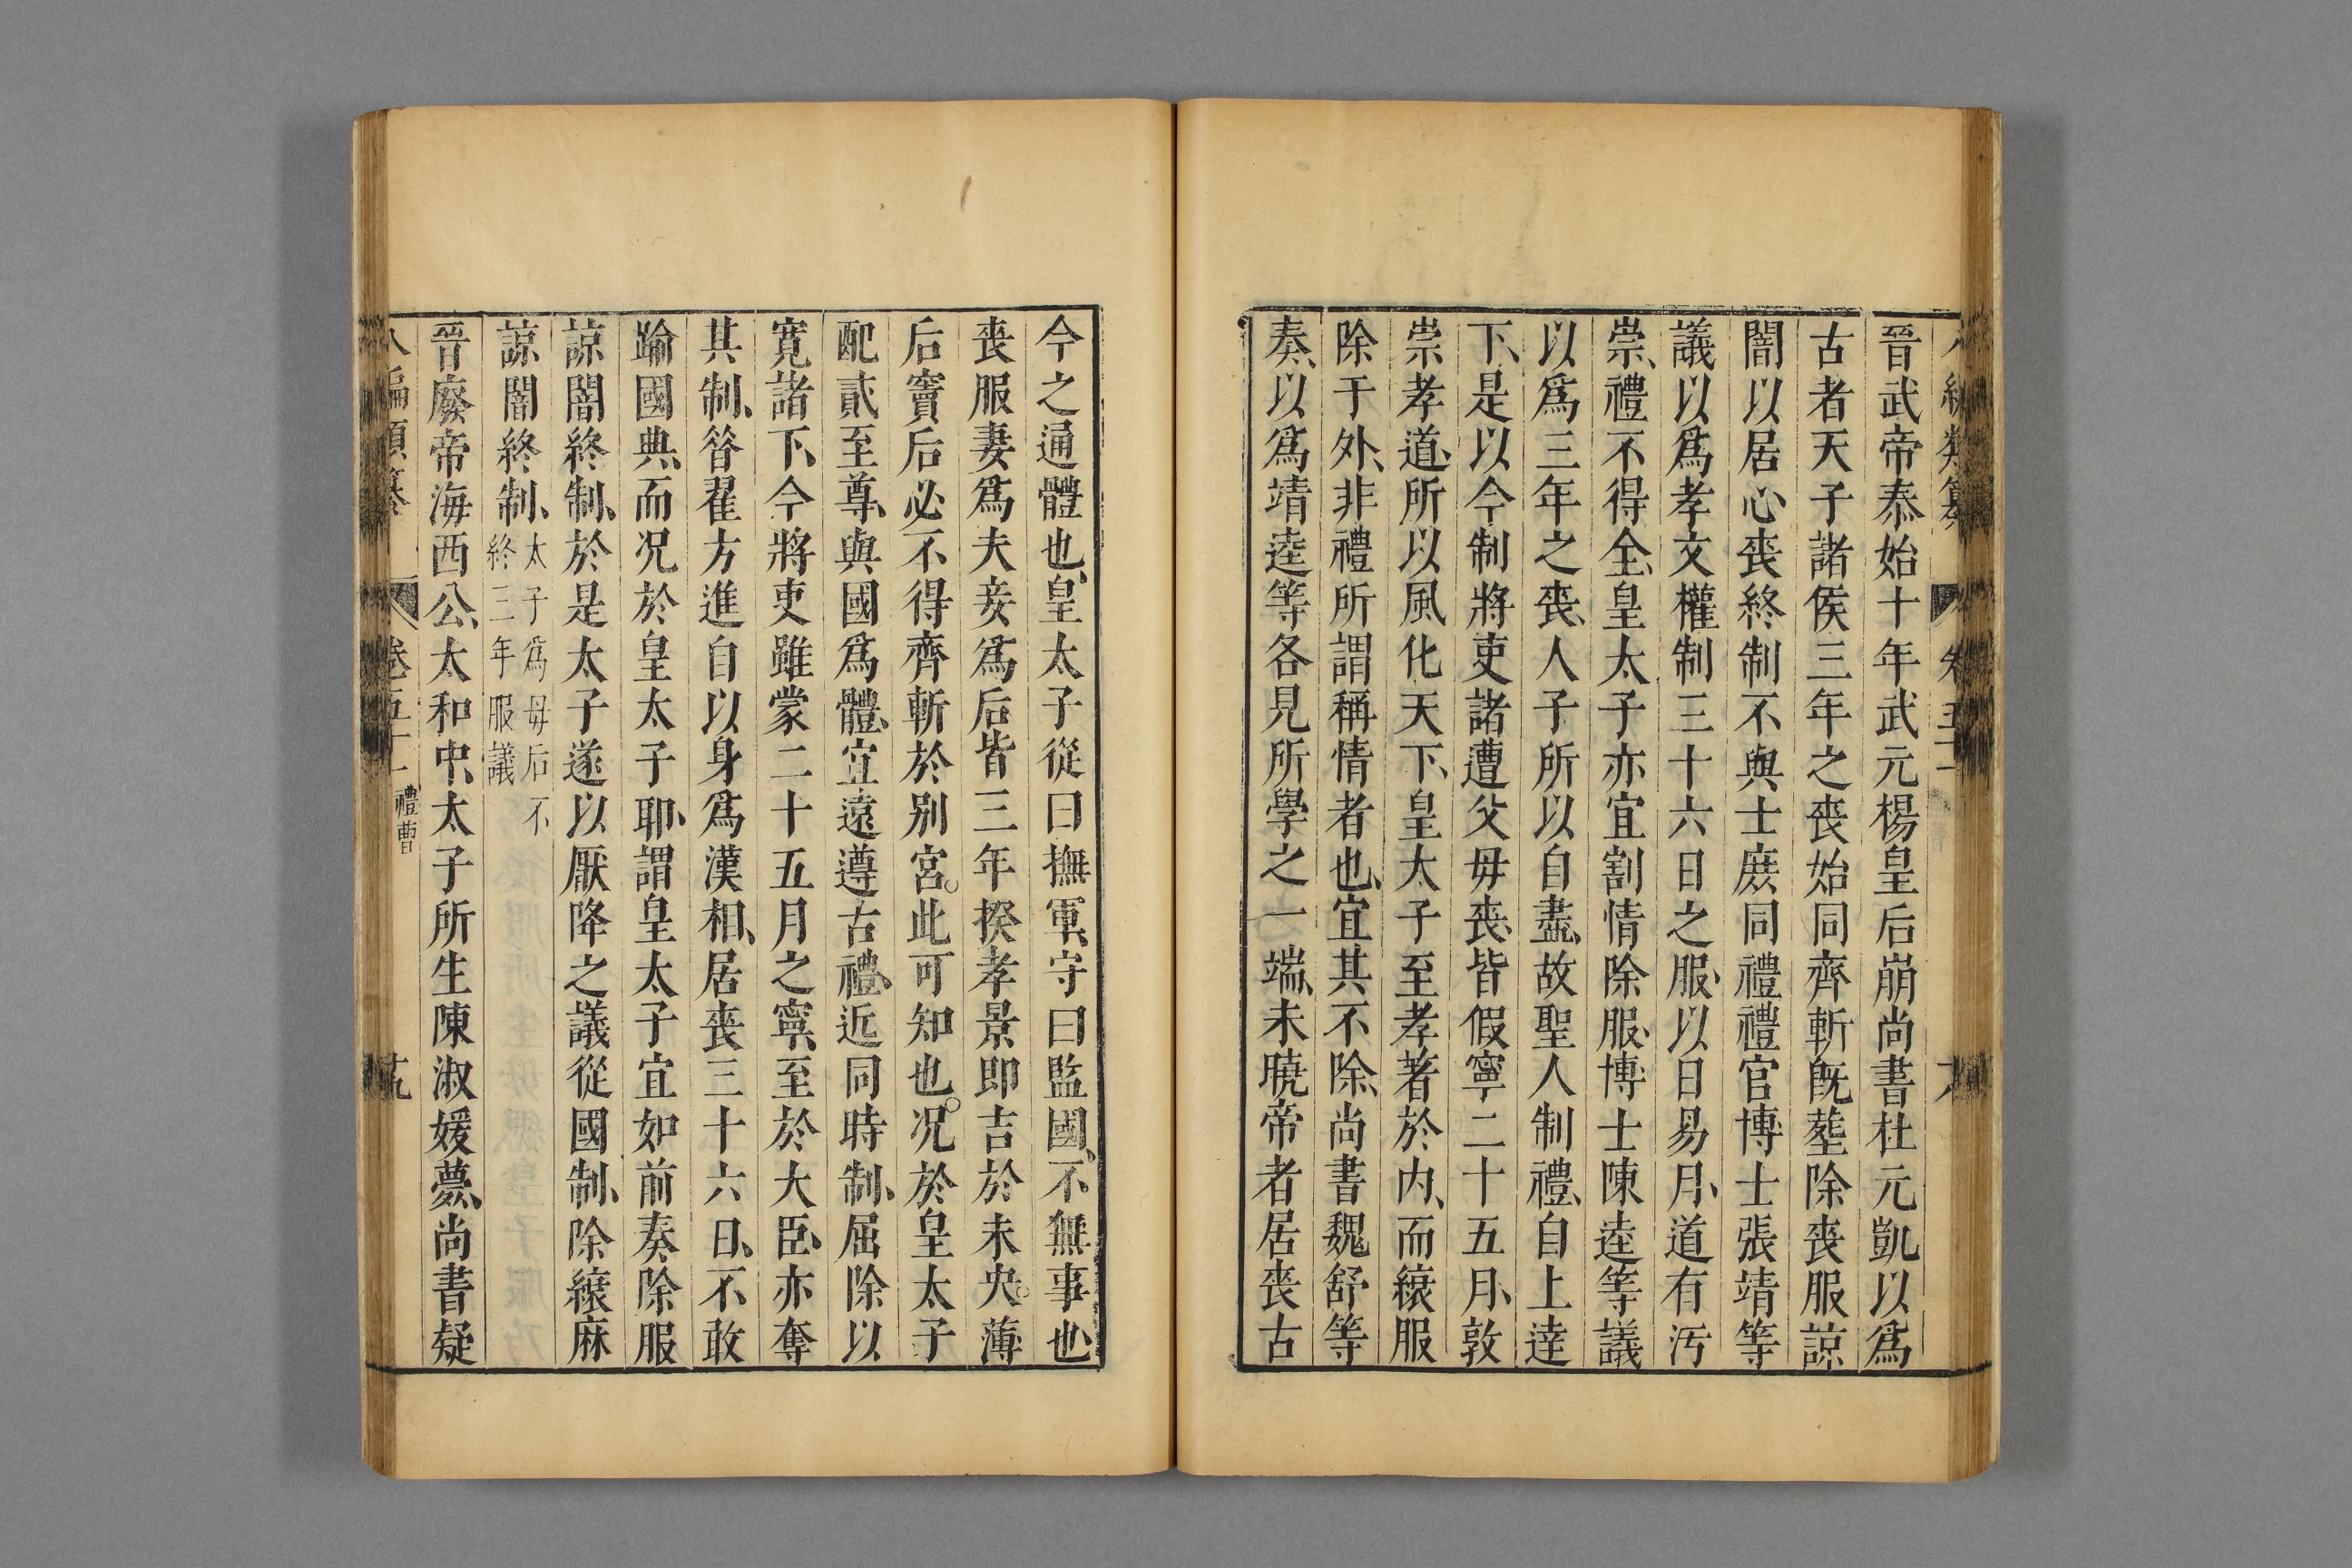 晉武帝泰始十年武元楊皇后崩尚書杜元凱以爲
古者天子諸侯三年之喪始同齊斬旣塟除喪服諒
闇以居心喪終制不與士庻同禮禮官博士張靖等
議以爲孝文權制三十六日之服以日易月道有汚
崇禮不得全皇太子亦宜割情除服博士陳逵等議
以爲三年之喪人子所以自盡故聖人制禮自上逹
下是以今制將吏諸遭父毋喪皆假寧二十五月敦
崇孝道所以風化天下皇太子至孝著於内而縗服
除于外非禮所謂稱情者也宜其不除尚書魏舒等
奏以爲靖逵等各見所學之一端未曉帝者居喪古
今之通體也皇太子從曰撫軍守曰監國不無事也
喪服妻爲夫妾爲后皆三年揆孝景即吉於未央薄
后竇后必不得齊斬於别宮此可知也况於皇太子
配貳至尊與國爲體宜遠遵古禮近同時制屈除以
寛諸下今將吏雖蒙二十五月之寧至於大臣亦奪
其制昝翟方進自以身爲漢相居喪三十六日不敢
踰國典而况於皇太子耶謂皇太子宜如前奏除服
諒闇終制於是太子遂以厭降之議從國制除縗麻
諒闇終制太子爲毋后不
終三年服議
晉廢帝海西公太和中太子所生陳淑媛薨尚書疑
八編類纂 卷五十一 禮曹 十九